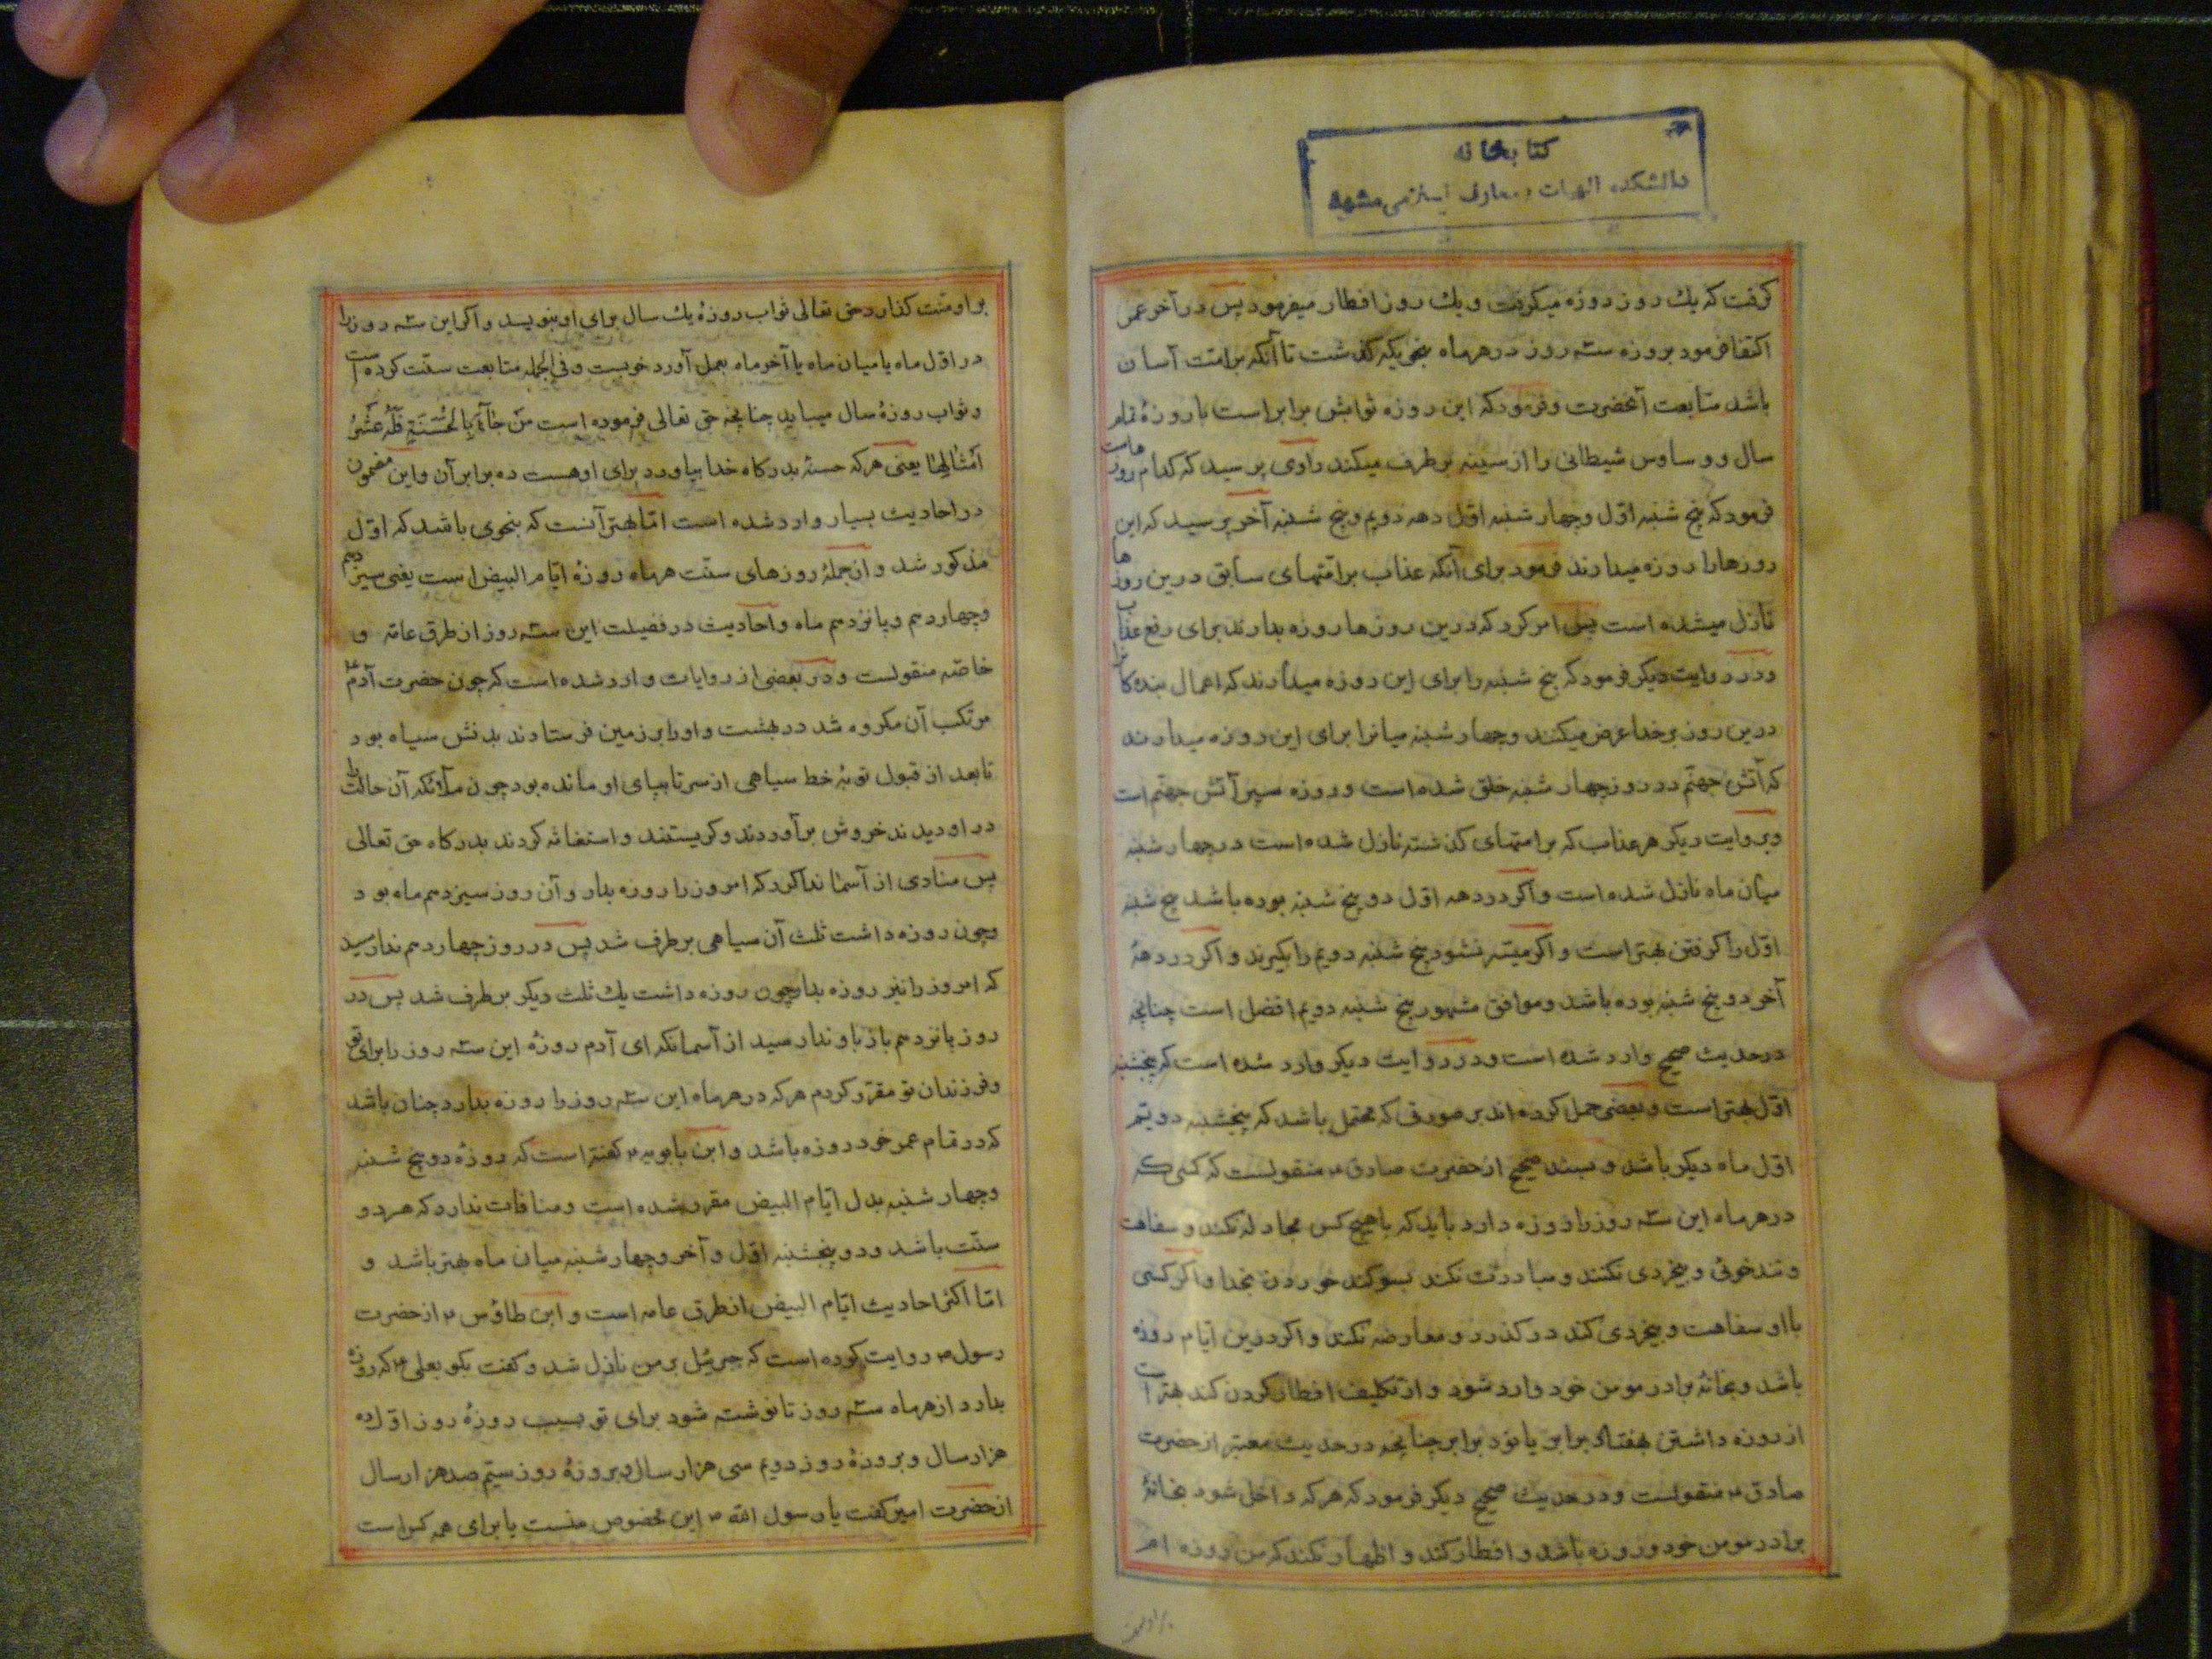 کتابخانه
دانشکده الهیات و معارف اسلامی مشهد
کرفت که یك روز روزه میکرفت و یك روز افطار میفرمود پس در آخر عمر
اکتفا فرمود بروزه سه روز در هر ماه بنحویکه گذشت تا آنکه بر امت آسان
باشد متابعت آنحضرت و فرمود که این روزه ثوابش برابر است با روزهٔ تمام
سال و وساوس شیطانی را از سینه بر طرف میکند راوی پرسید که کدام روزهاست
فرمود که پنج شنبه اول و چهار شنبه اول دهه دویم و پنج شنبه آخر پرسید که این
روزها را روزه میدارند فرمود برای آنکه عذاب بر امتهای سابق درین روزها
نازل میشده است پس امر کرد که درین روزها روزه بدارند برای رفع عذاب
و در روایت دیکر فرمود که پنج شنبه را برای این روزه میدارند که اعمال بندکانرا
درین روز بر خدا عرض میکنند و چهار شنبه میانرا برای این روزه میدارند
که آتش جهنم در روز چهار شنبه خلق شده است و روزه سپر آتش جهنم است
و بروایت دیکر هر عذاب که بر امتهای کذشته نازل شده است در چهار شنبه
میان ماه نازل شده است و اکر در دهه اول دو پنج شنبه بوده باشد پنج شنبه
اول را کرفتن بهتر است و اکر میسر نشود پنج شنبه دویم را بکیرند و اکر در دههٔ
آخر دو پنج شنبه بوده باشد و موافق مشهور پنج شنبه دویم افضل است چنانچه
در حدیث صحیح وارد شده است و در روایت دیکر وارد شده است که پنجشنبه
اول بهتر است و بعضی حمل کرده اند بر صورتی که محتمل باشد که پنجشنبه دویم
اول ماه دیکر باشد و بسند صحیح از حضرت صادق ع منقولست که کسی که
در هر ماه این سه روز را روزه دارد باید که با هیچ کس مجادله نکند و سفاهت
و تند خوئی و بیخردی نکند و مبادرت نکند بسوکند خوردن بخدا و اکر کسی
با او سفاهت و بیخردی کند در کذرد و معارضه نکند و اکر درین ایام روزه
باشد و بخانهٔ برادر مومن خود وارد شود و او تکلیف افطار کردن کند بهتر است
از روزه داشتن هفتاد برابر یا نود برابر چنانچه در حدیث معتبر از حضرت
صادق ع منقولست و در حدیث صحیح دیکر فرمود که هر که داخل شود بخانهٔ
برادر مومن خود و روزه باشد و افطار کند و اظهار نکند که من روزه ام
بر او منت
بر او منت کذارد حق تعالی ثواب روزهٔ یك سال برای او بنویسد و اکر این سه روز را
در اول ماه یا میان ماه یا آخر ماه بعمل آورد خوبست و فی الجمله متابعت سنت کرده است
و ثواب روزهٔ سال مییابد چنانچه حق تعالی فرموده است مَنْ جٰآءَ بِالْحَسَنَةِ فَلَهُ عَشْرُ
اَمْثٰالِهٰا یعنی هر که حسنهٔ بدرکاه خدا بیاورد برای او هست ده برابر آن و این مضمون
در احادیث بسیار وارد شده است اما بهتر آنست که بنحوی باشد که اول
مذکور شد و از جملهٔ روزهای سنت هر ماه روزهٔ ایام البیض است یعنی سیزدهم
و چهاردهم و پانزدهم ماه و احادیث در فضیلت این سه روز از طرق عامه و
خاصه منقولست و در بعضی از روایات وارد شده است که چون حضرت آدم ع
مرتکب آن مکروه شد در بهشت و او را بر زمین فرستادند بدنش سیاه بود
تا بعد از قبول توبهٔ خط سیاهی از سر تا بپای او مانده بود چون ملائکه آن حالت را
در او دیدند خروش برآوردند و کریستند و استغاثه کردند بدرکاه حق تعالی
پس منادی از آسمان ندا کرد که امروز را روزه بدار و آن روز سیزدهم ماه بود
و چون روزه داشت ثلث آن سیاهی بر طرف شد پس در روز چهاردهم ندا رسید
که امروز را نیز روزه بدار چون روزه داشت یك ثلث دیکر بر طرف شد پس در
روز پانزدهم باز باو ندا رسید از آسمان که ای آدم روزهٔ این سه روز را برای تو
و فرزندان تو مقرر کردم هر که در هر ماه این سه روز را روزه بدارد چنان باشد
که در تمام عمر خود روزه باشد و ابن بابویه ره کفته است که روزهٔ دو پنج شنبه
و چهار شنبه بدل ایام البیض مقرر شده است و منافات ندارد که هر دو
سنت باشد و دو پنجشنبه اول و آخر و چهار شنبه میان ماه بهتر باشد و
اما اکثر احادیث ایام البیض از طرق عامه است و ابن طاؤس ره از حضرت
رسول ص روایت کرده است که جبرئیل بر من نازل شد و کفت بکو بعلی ع که روزه
بدارد از هر ماه سه روز تا نوشته شود برای تو بسبب روزهٔ روز اول ده
هزار سال و بروزهٔ روز دویم سی هزار سال و بروزهٔ روز سیم صد هزار سال
از حضرت امیر کفت یا رسول الله ص این مخصوص منست یا برای همه کس است